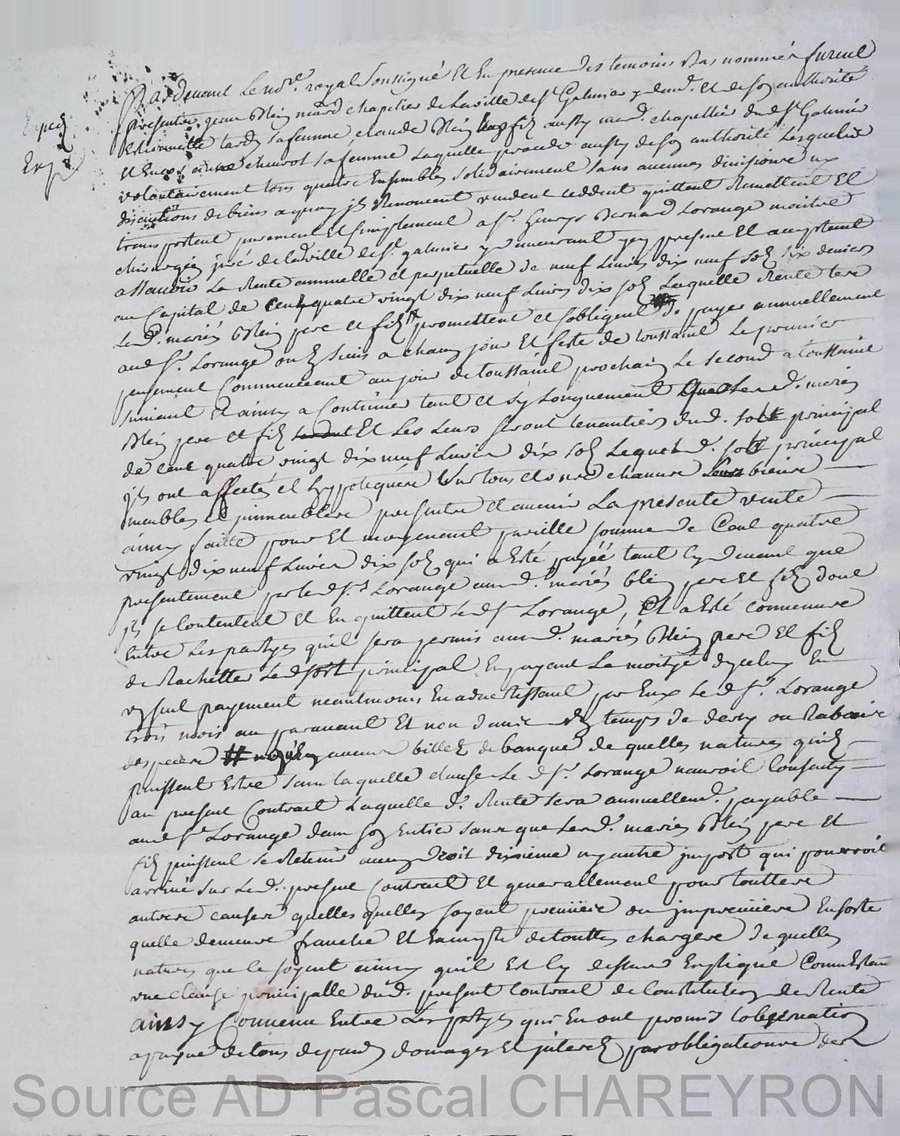 Expe[
Exp
Pardevant le no.re royal soussigné et en presence des temoins bas nommés furent
presents jean Blein mard chapelier de la ville de st Galmier y demt et de son authorité
tardy sa femme, claude Blein fils aussy mard chapellier de st Galmier
et chevrot sa femme laquelle procede aussy de son authorité lesquels
volontairement tous quatre ensembles solidairement sans aucunes divisions ny
discutions de biens a quoy ils renoncent vendent ceddent quittent remettent et
transportent purement et simplement a sr Bernard Lorange maitre
chirurgien juré de la ville de st galmier y demeurant icy present et acceptant
assavoir la rente annuelle et perpetuelle de neuf livres dix neuf sols six deniers
au capital de cent quatre vingt dix neuf livres dix sols laquelle rente les
led. mariés Blein pere et fils promettent et sobligent de payer annuellement
aud sr Lorange ou es siens a chacun jour et feste de toussaint le premier
payement commenceant au jour de toussaint prochain le second a toussaint
suivant et ainsy a continuer tant et sy longuement que lesd. mariés
Blein pere et fils et les leurs seront tenantiers dud. sort principal
de cent quatre vingt dix neuf livres dix sols lequel d. sort principal
ils ont affectés et hyppotequéss sur tous et uns chacuns leurs biens
meubles et immeubles presents et avenir la presente vente
ainsy faitte pour et moyenant pareille somme de cent quatre
vingt dix neuf livres dix sols qui a esté payée tant cy devant que
presentement par le d sr Lorange aux d. mariés blein pere et fils dont
ils se contentent et en quittent le d sr Lorange, et a esté convenu
entre les partyes quil sera permis aux d. mariés Blein pere et fils
de rachetter led sort principal en payant la moitye dyceluy en
un seul payement neantmoins en advertissant par eux le d sr Lorange
trois mois auparavant et non dans un temps de decry ou rabais
despeces aucuns billets de banque de quelles natures quils
puissent estre sans laquelle clause le d sr Lorange nauroit consenty
au present contract laquelle d. rente sera annuellemt payable
aud sr Lorange dans son entier sans que les d. mariés Blein pere et
fils puissent se retenir aucun droit dixieme ny autre import qui pourroit
arriver sur le d. present contract et generallement pour touttes
autres causes quelles quelles soyent premiere ou en sorte
quelle demeure franche et de touttes charges de quelles
natures que ce soyent ainsy quil est cy dessus expliqué comme estant
une clause principalle dud. present contract de constitution de rente
ainsy convenu entre les partyes qui en ont promis lobservation
a payne de tous depands domages et interets par obligations de
Source AD Pascal CHAREYRON